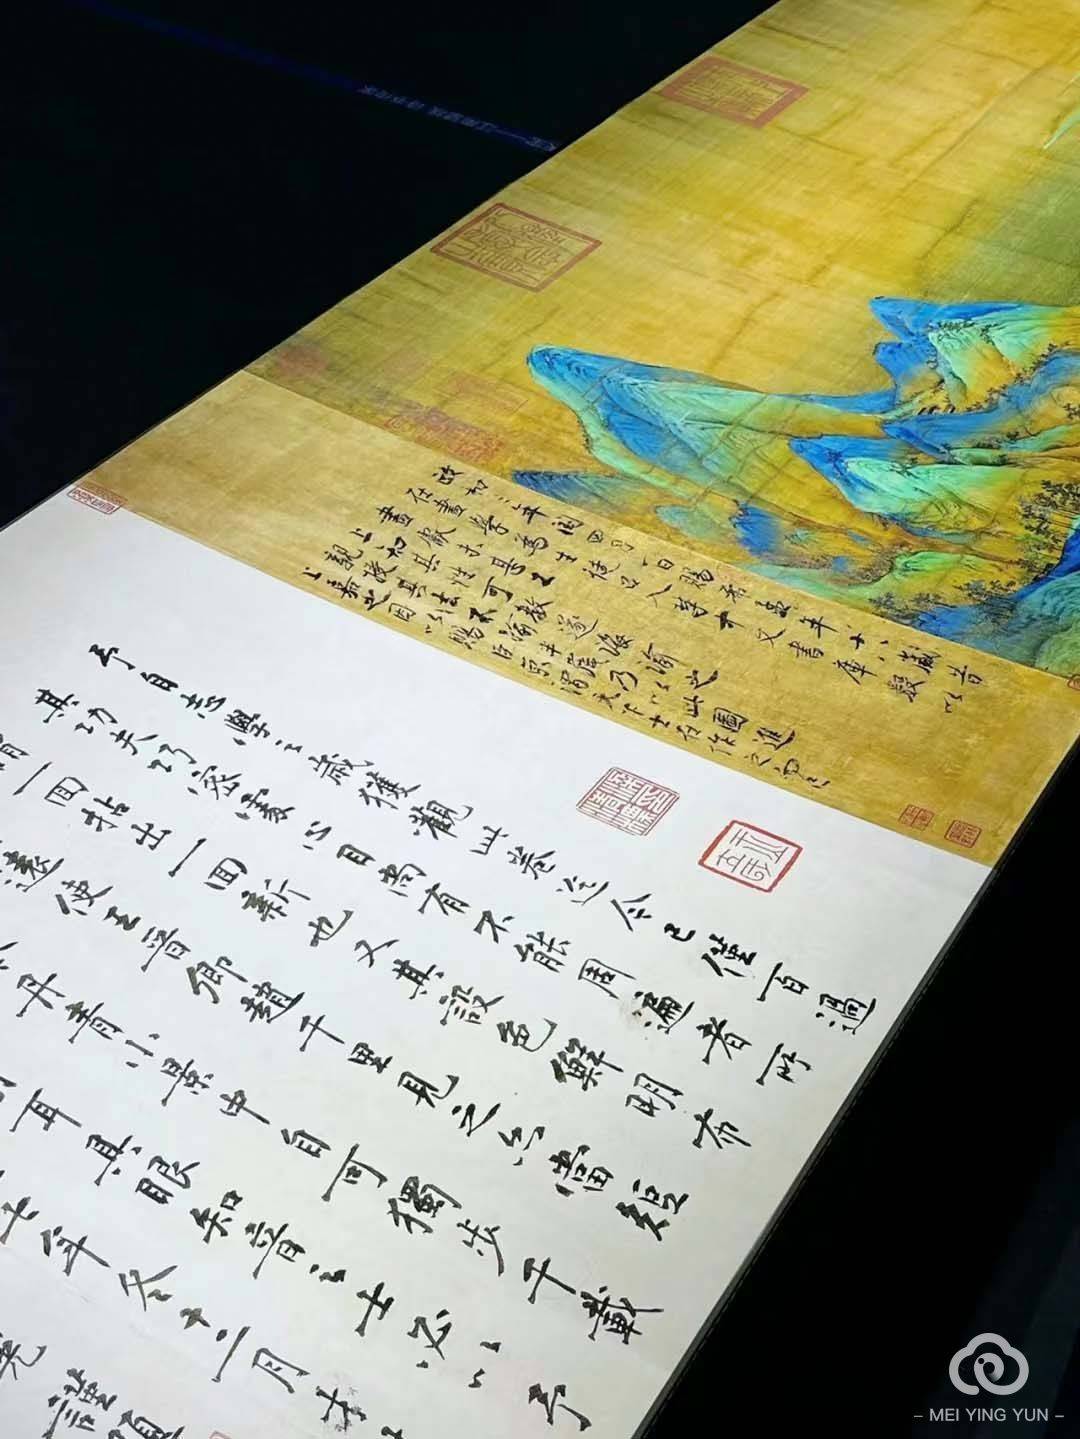 政和三年閏四月一日賜希孟年十八歲昔
在畫學為生徒召入禁中文書庫數以
畫獻未甚工
上知其性可教遂誨諭之
親授其法不踰半歲乃以此圖進
上嘉之因以賜臣京謂天下士在作之而已
予自志學之歲獲觀此卷迄今已僅百過
其功夫巧密處心目尚有不能周遍者所
謂一回拈出一回新也又其設色鮮明布
遠使王晉卿趙千里見之亦當短
丹青小景中自可獨步千載
耳具眼知音之士必以予
七年冬十二月才
光謹題
– MEI YING YUN –